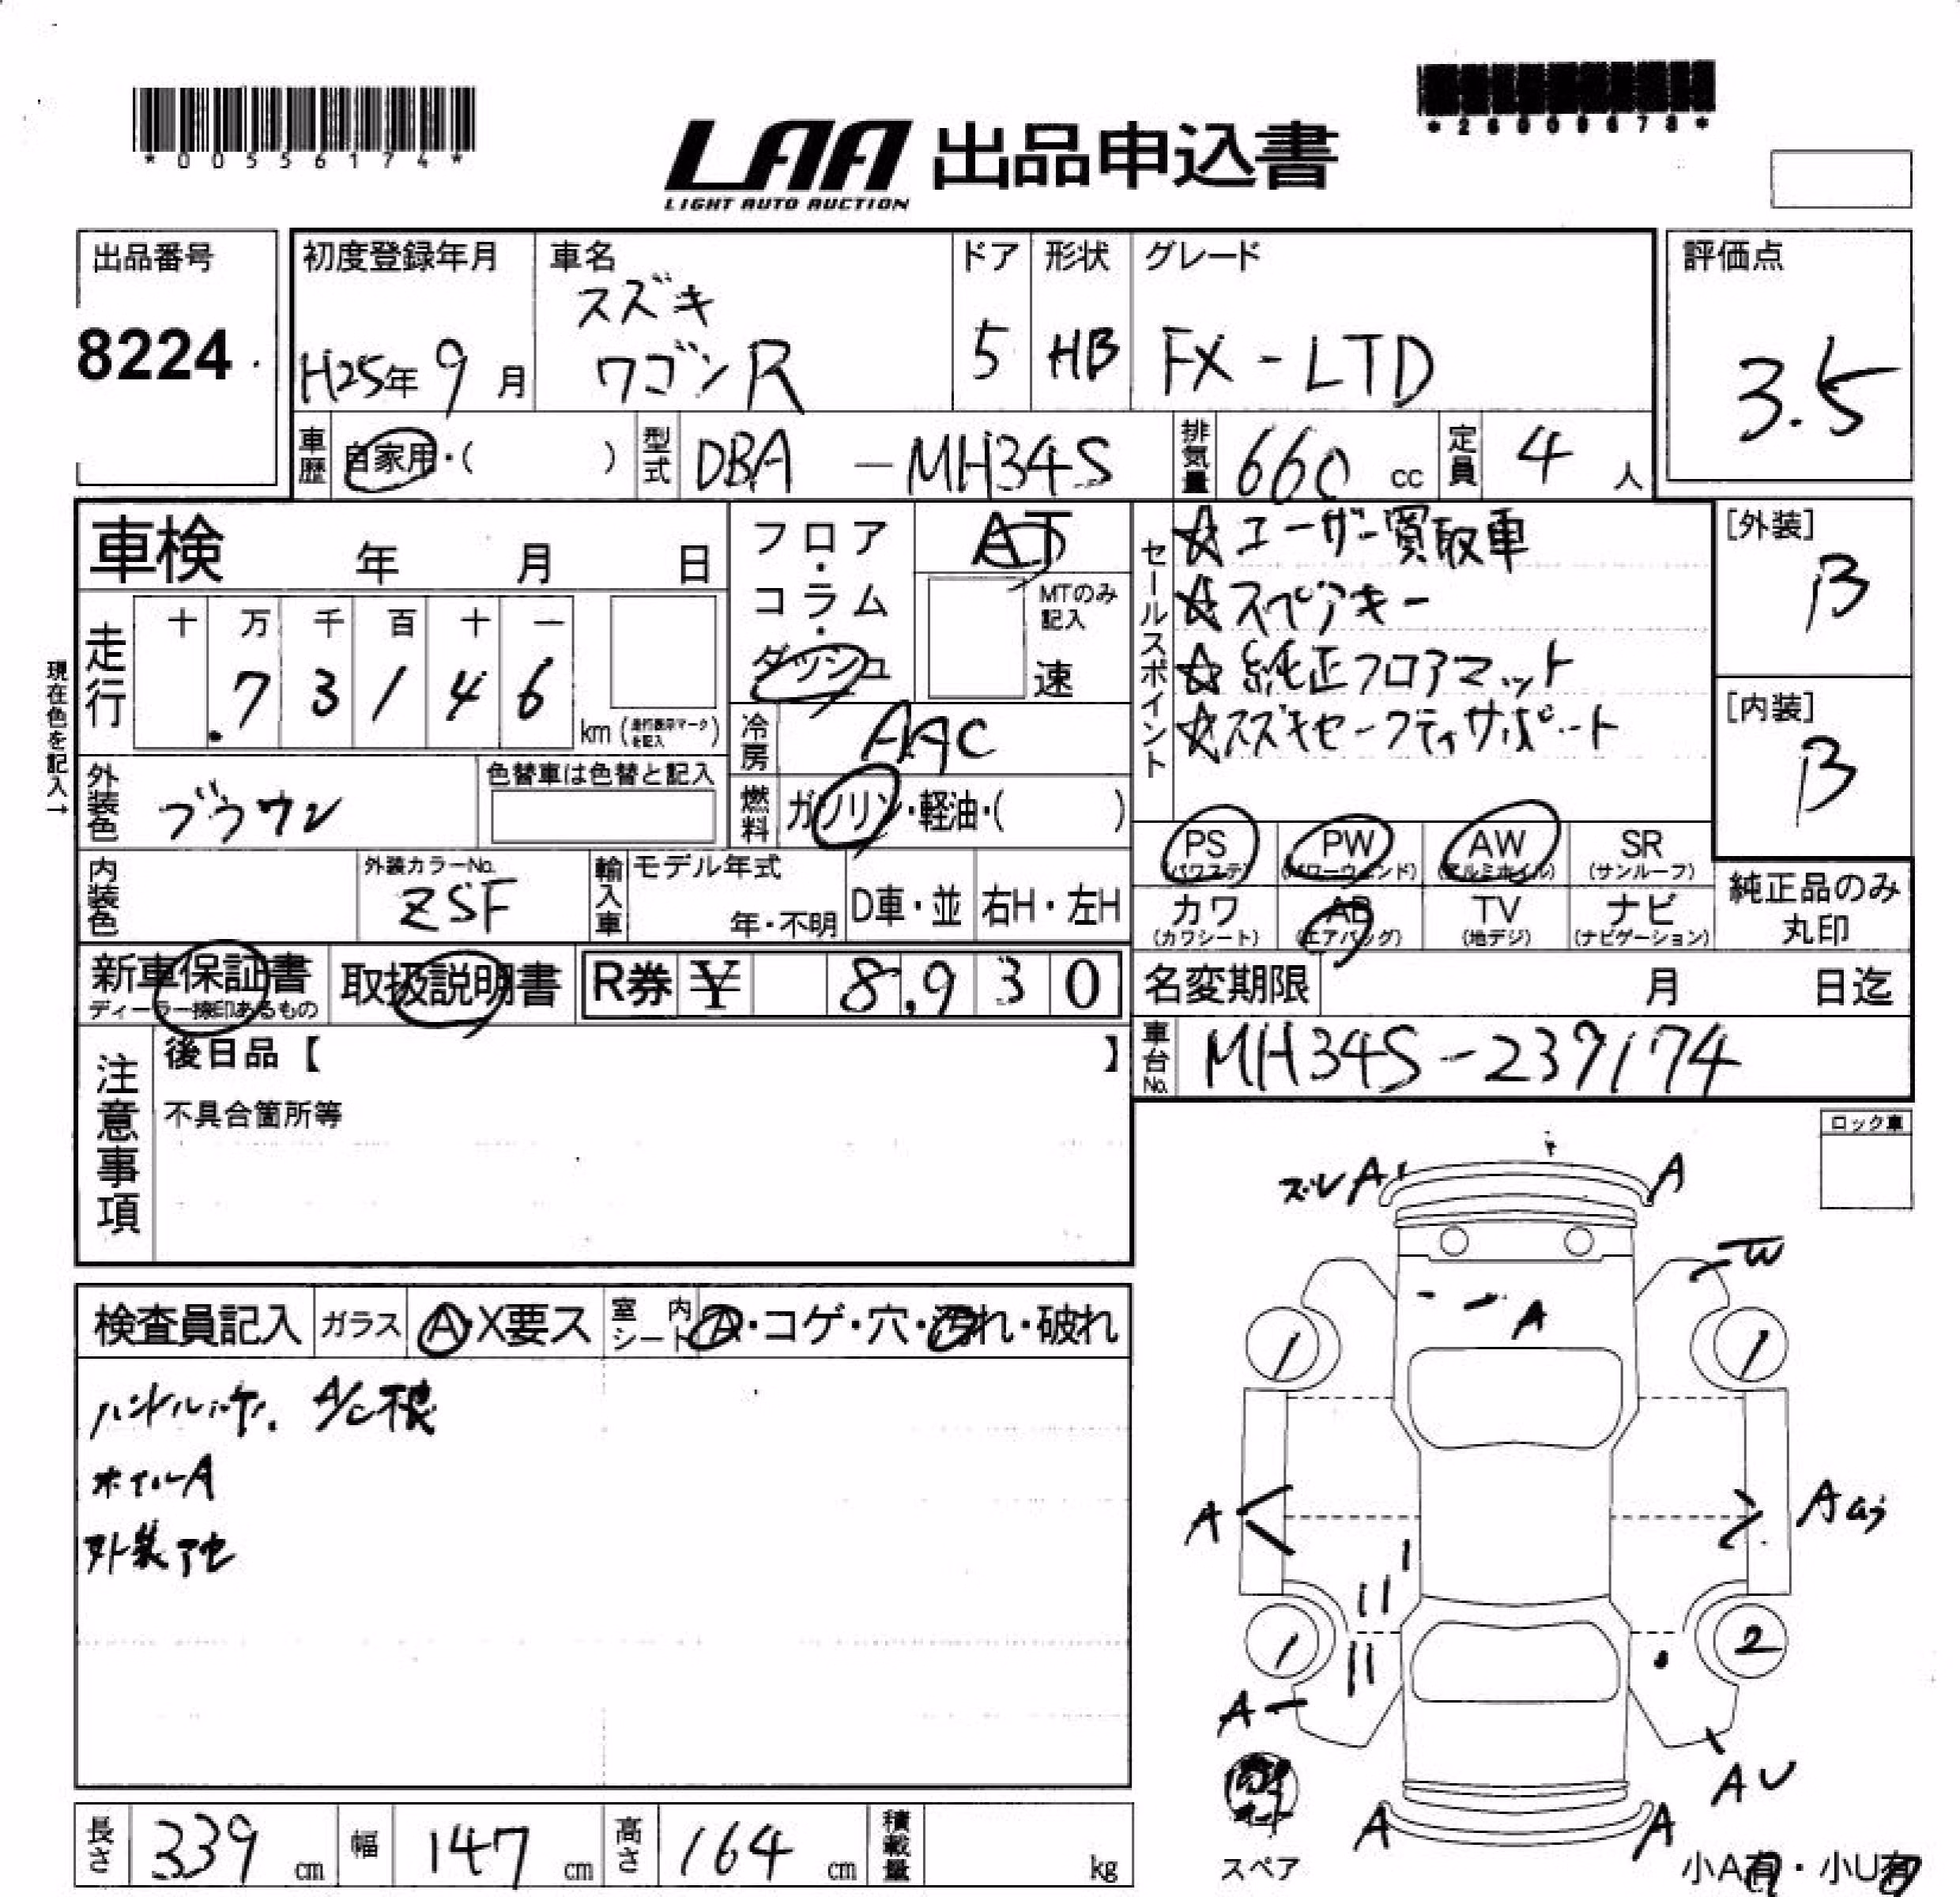 *00556174*
LAA 出品申込書
LIGHT AUTO AUCTION
*26009678*
出品番号
8224
初度登録年月
H25年 9月
車名
スズキ
ワゴンR
ドア
5
形状
HB
グレード
FX-LTD
評価点
3.5
車歴
自家用・( )
型式
DBA -MH34S
排気量
660 cc
定員
4 人
車検 年 月 日
走行
十 万 千 百 十 一
7 3 1 4 6
km (走行表示マークを記入)
現在色を記入→
フロア・コラム・ダッシュ
AT
MTのみ記入
速
冷房
AAC
燃料
ガソリン・軽油・( )
セールスポイント
☆ユーザー買取車
☆スペアキー
☆純正フロアマット
☆スズキセーフティサポート
[外装]
B
[内装]
B
外装色
ブラウン
色替車は色替と記入
内装色
外装カラーNo.
ZSF
輸入車
モデル年式
年・不明
D車・並
右H・左H
PS (パワステ)
PW (パワーウィンド)
AW (アルミホイル)
SR (サンルーフ)
カワ (カワシート)
AB (エアバッグ)
TV (地デジ)
ナビ (ナビゲーション)
純正品のみ
丸印
新車保証書
ディーラー捺印あるもの
取扱説明書
R券 ¥ 8,930
名変期限 月 日迄
車台No.
MH34S-239174
注意事項
後日品【 】
不具合箇所等
ロック車
検査員記入
ガラス
A・X要ス
室内シート
A・コゲ・穴・汚れ・破れ
ハンドルハゲ. A/C不良
ホイルA
外装
ズレA
A
W
A
1
1
A
A
1
2
A
AU
A
A
スペア
小A有・小U有
長さ
339 cm
幅
147 cm
高さ
164 cm
積載量
kg